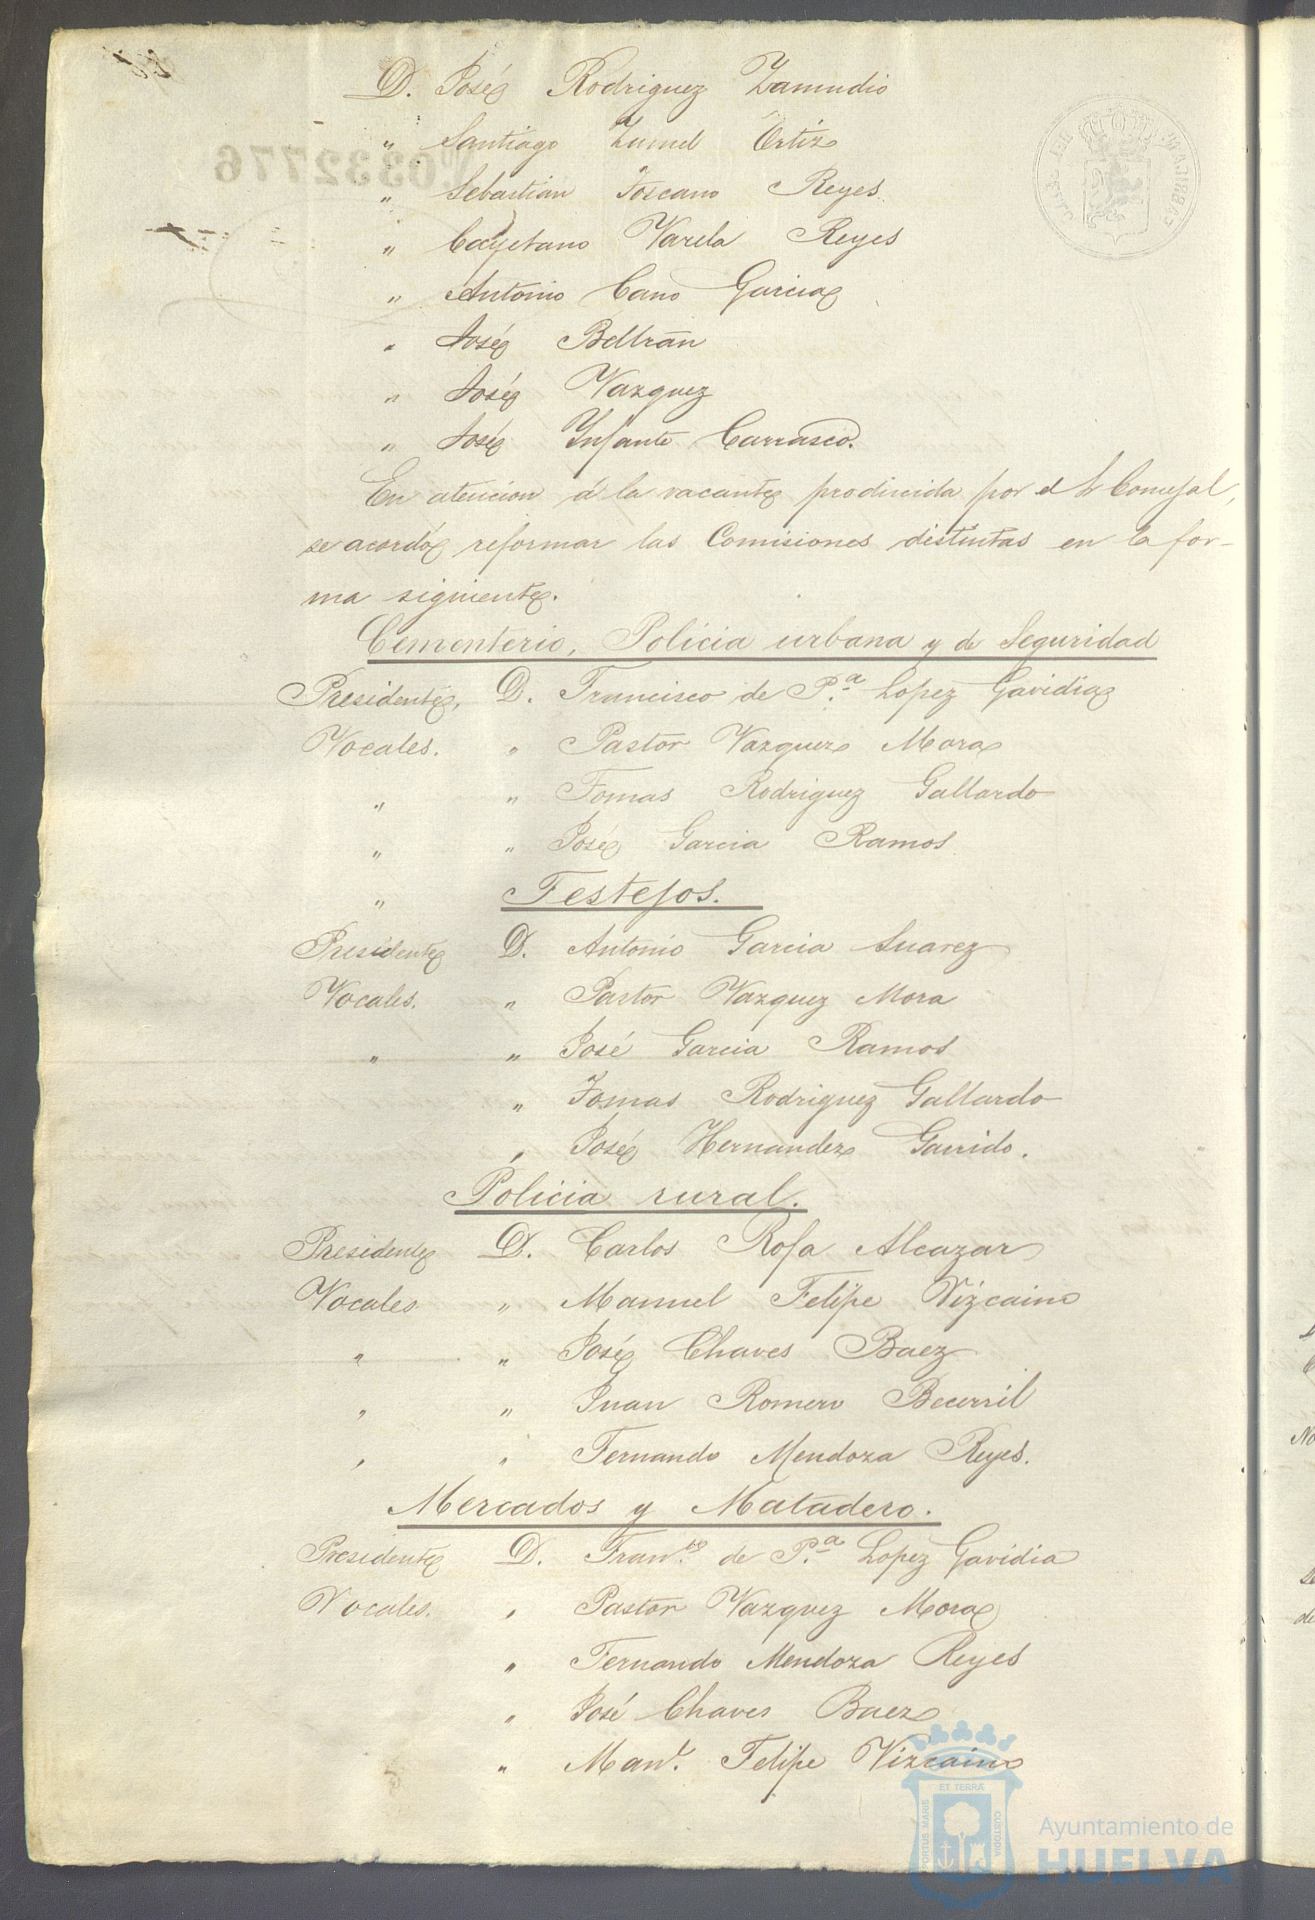 D. José Rodriguez Zamudio
" Santiago Zumel Ortiz
" Sebastian Toscano Reyes
" Cayetano Varela Reyes
" Antonio Cano Garcia
" José Beltrán
" José Vazquez
" José Infante Carrasco.
En atencion á la vacante producida por el Sr Concejal,
se acordó reformar las Comisiones distintas en la for-
ma siguiente.
Cementerio, Policia urbana y de Seguridad
Presidente, D. Francisco de P.ª Lopez Gavidia
Vocales. " Pastor Vazquez Mora
" " Tomas Rodriguez Gallardo
" " José Garcia Ramos
" Festejos.
Presidente D. Antonio Garcia Suarez
Vocales. " Pastor Vazquez Mora
" " José Garcia Ramos
" Tomas Rodriguez Gallardo
" José Hernandez Garrido.
Policia rural.
Presidente D. Carlos Rofa Alcazar
Vocales " Manuel Felipe Vizcaino
" " José Chaves Baez
" " Juan Romero Becerril
" " Fernando Mendoza Reyes.
Mercados y Matadero.
Presidente D. Fran.co de P.ª Lopez Gavidia
Vocales. " Pastor Vazquez Mora
" Fernando Mendoza Reyes
" José Chaves Baez
" Man.l Felipe Vizcaino
PORTUS MARIS ET TERRÆ CUSTODIA
Ayuntamiento de
HUELVA